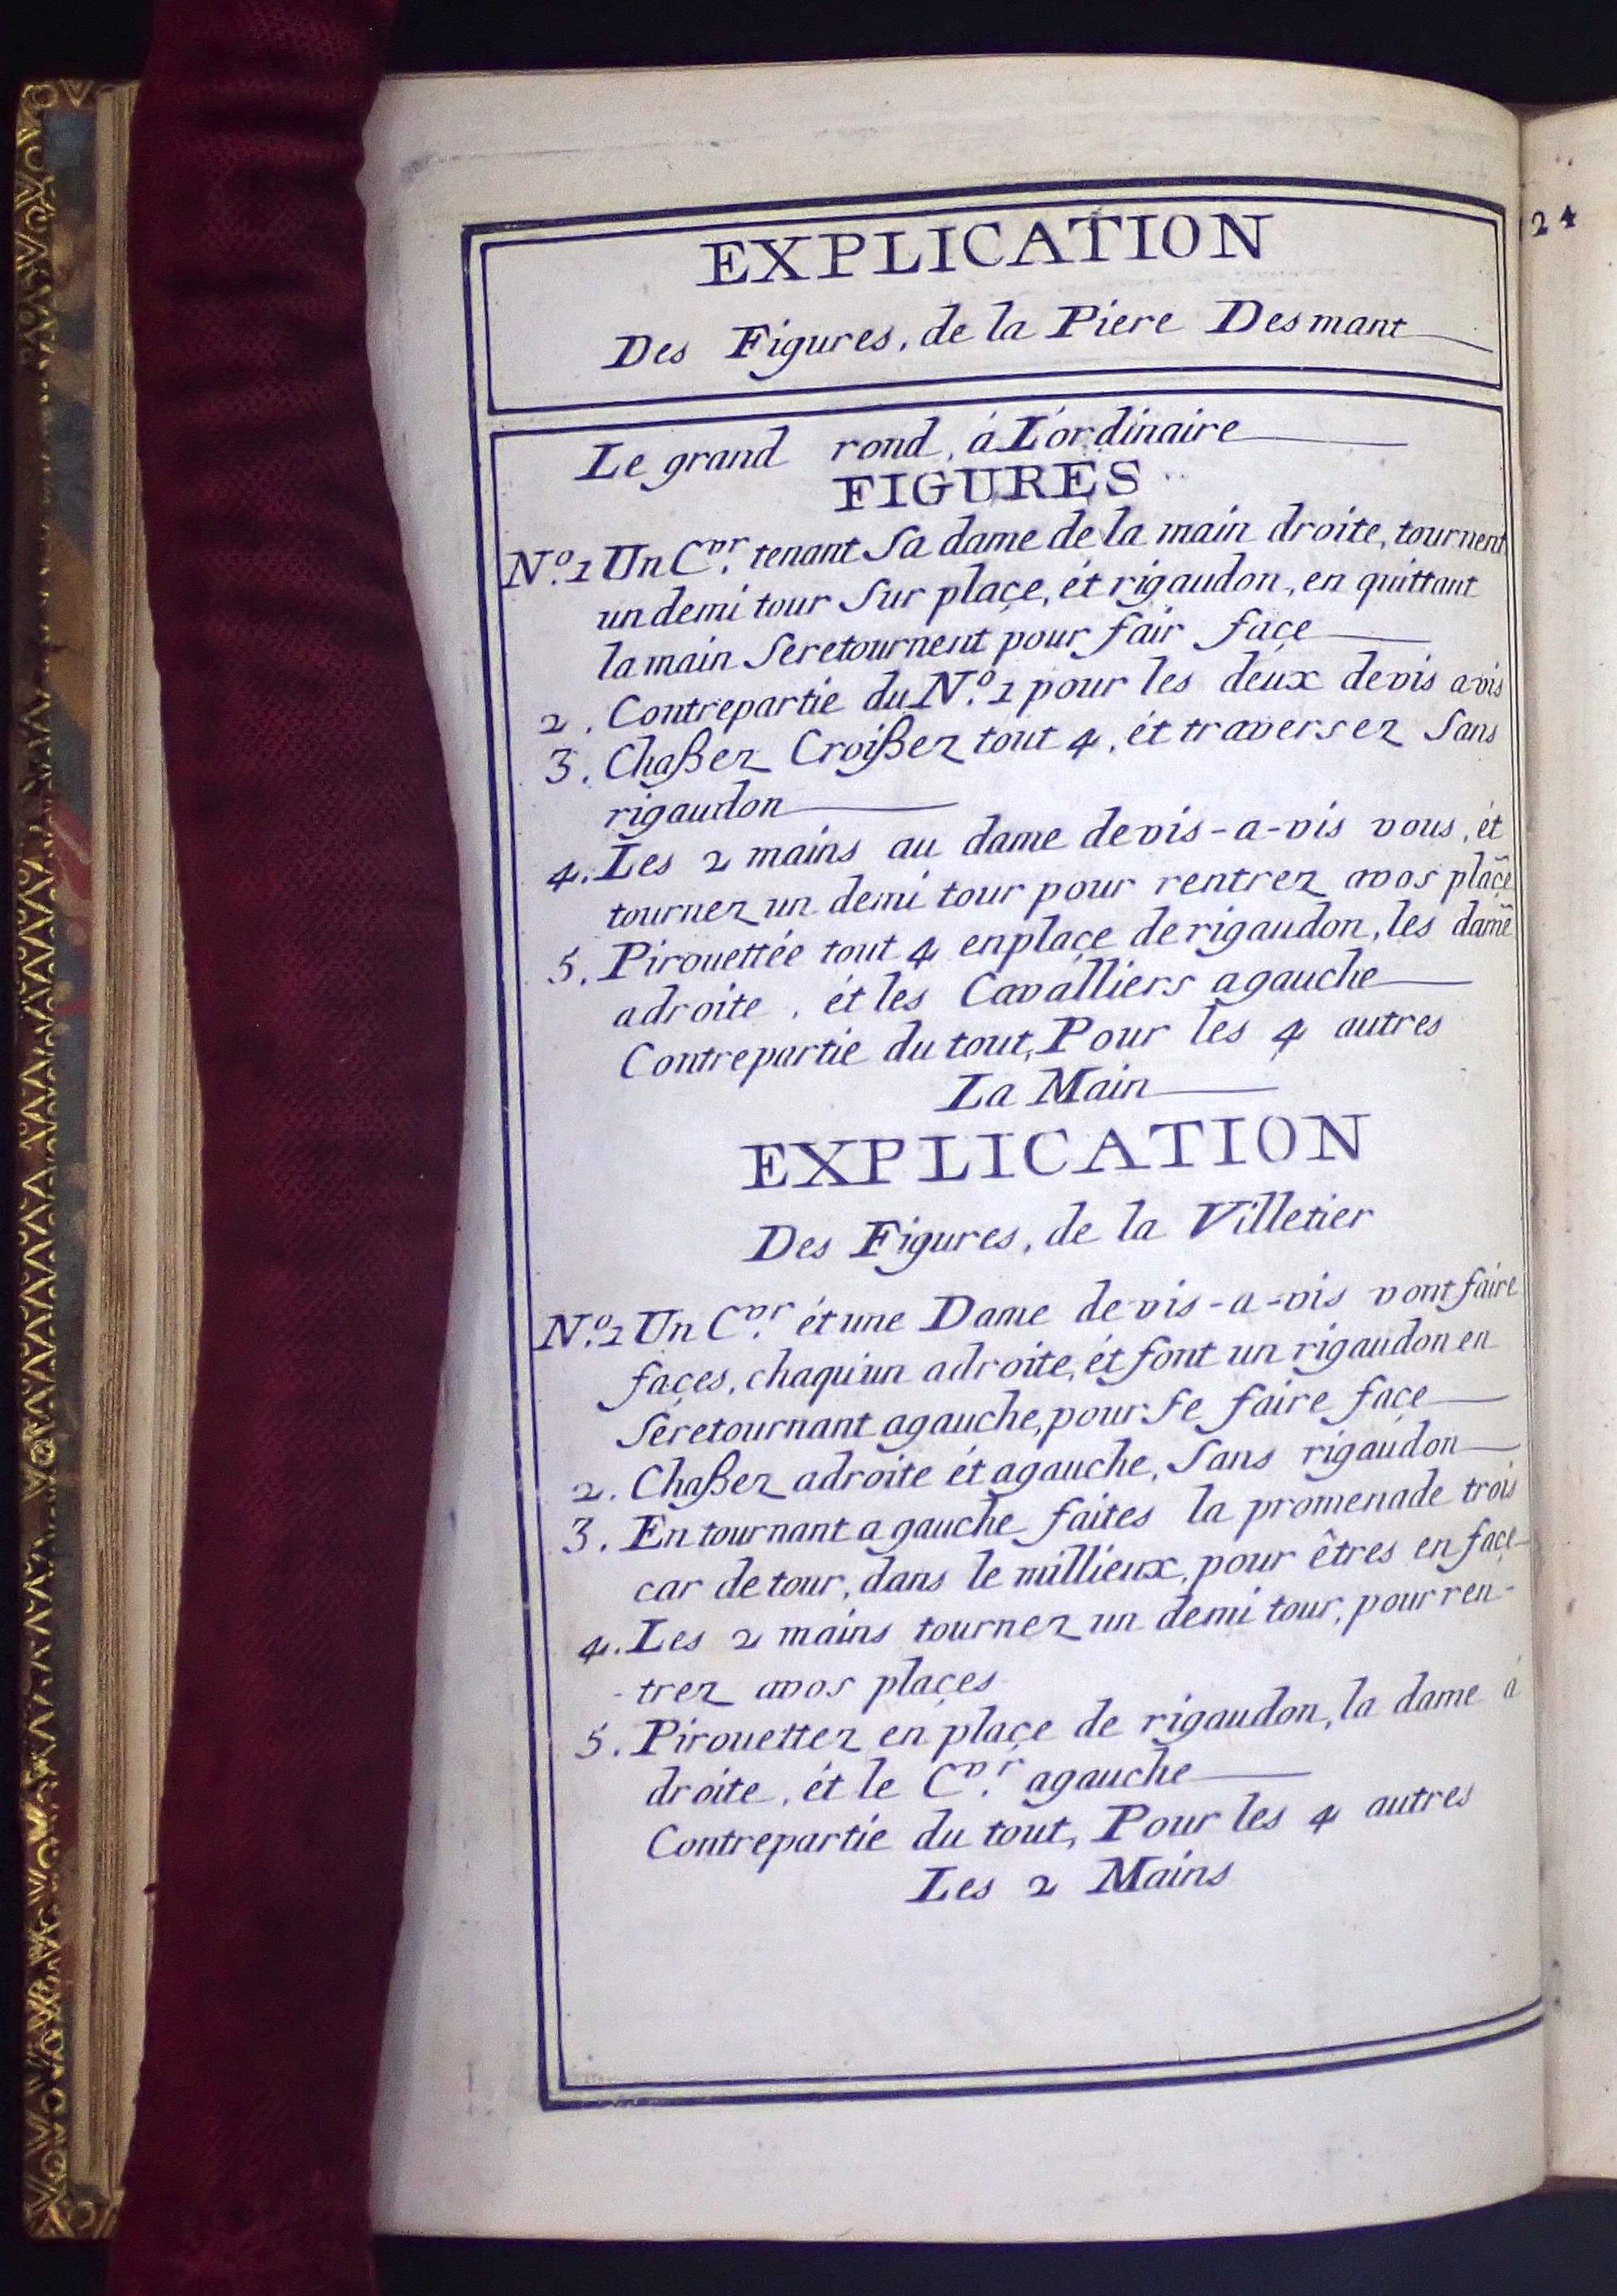 EXPLICATION
Des Figures, de la Piere Desmant
Le grand rond, á L'ordinaire
FIGURES
Nº. 1 Un Cvr. tenant Sa dame de la main droite, tournent
un demi tour Sur plaçe, ét rigaudon, en quittant
la main Seretournent pour fair façe
2. Contrepartie du Nº. 1 pour les deux devis avis
3. Chaßez Croißez tout 4, ét traversez Sans
rigaudon
4. Les 2 mains au dame devis-a-vis vous, ét
tournez un demi tour pour rentrez avos plaçe
5. Pirouettée tout 4 enplaçe derigaudon, les dame
adroite, ét les Cavalliers agauche
Contrepartie du tout, Pour les 4 autres
La Main
EXPLICATION
Des Figures, de la Villetier
Nº. 1 Un Cvr. ét une Dame devis-a-vis vont faire
façes, chaqu'un adroite, ét font un rigaudon en
Seretournant agauche, pour Se faire façe
2. Chaßez adroite ét agauche, Sans rigaudon
3. En tournant agauche faites la promenade trois
car de tour, dans le millieux, pour êtres en façe
4. Les 2 mains tournez un demi tour, pour ren-
-trez avos plaçes
5. Pirouettez en plaçe de rigaudon, la dame á
droite, ét le Cvr. agauche
Contrepartie du tout, Pour les 4 autres
Les 2 Mains
24